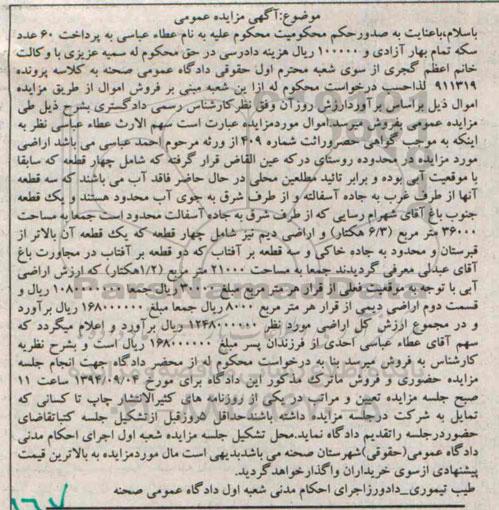 موضوع:آگهی مزایده عمومی
باسلام،باعنایت به صدورحکم محکومیت محکوم علیه به نام عطاء عباسی به پرداخت ۶۰ عدد
سکه تمام بهار آزادی و ۱۰۰۰۰۰ ریال هزینه دادرسی در حق محکوم له سمیه عزیزی با وکالت
خانم اعظم گجری از سوی شعبه محترم اول حقوقی دادگاه عمومی صحنه به کلاسه پرونده
۹۱۱۳۱۹ لذاحسب درخواست محکوم له ازا ین شعبه مبنی بر فروش اموال از طریق مزایده
اموال ذیل براساس برآوردارزش روزآن وفق نظرکارشناس رسمی دادگستری بشرح ذیل طی
مزایده عمومی بفروش میرسد.اموال موردمزایده عبارت است سهم الارث عطاء عباسی نظر به
اینکه به موجب گواهی حصروراثت شماره ۴۰۹ از ورثه مرحوم احمد عباسی می باشد اراضی
مورد مزایده در محدوده روستای درکه عین القاض قرار گرفته که شامل چهار قطعه که سابقا
با موقعیت آبی بوده و برابر تائید مطلعین محلی در حال حاضر فاقد آب می باشند که سه قطعه
آنها از طرف غرب به جاده آسفالته و از طرف شرق به جوی آب محدود هستند و یک قطعه
جنوب باغ آقای شهرام رسایی که از طرف شرق به جاده آسفالت محدود است جمعا به مساحت
۳۶۰۰۰ متر مربع (۶/۳ هکتار) و اراضی دیم نیز شامل چهار قطعه که یک قطعه آن بالاتر از
قبرستان و محدود به جاده خاکی و سه قطعه بر آفتاب که دو قطعه بر آفتاب در مجاورت باغ
آقای عبدلی معرفی گردیدند جمعا به مساحت ۲۱۰۰۰ متر مربع (۱/۲هکتار) که ارزش اراضی
آبی با توجه به موقعیت فعلی از قرار هر متر مربع مبلغ ۳۰۰۰۰ ریال جمعا ۱۰۸۰۰۰۰۰۰۰ ریال و
قسمت دوم اراضی دیمی از قرار هر متر مربع ۸۰۰۰ ریال جمعا مبلغ ۱۶۸۰۰۰۰۰۰ ریال برآورد
و در مجموع ارزش کل اراضی مورد نظر ۱۲۴۸۰۰۰۰۰۰ ریال برآورد و اعلام میگردد که
سهم آقای عطاء عباسی احدی از فرزندان پسر مبلغ ۱۶۸۰۰۰۰۰۰ ریال است و بشرح نظریه
کارشناس به فروش میرسد بنا به درخواست محکوم له از محضر دادگاه جهت انجام جلسه
مزایده حضوری و فروش ماترک مذکور این دادگاه برای مورخ ۱۳۹۴/۰۹/۰۴ ساعت ۱۱
صبح جلسه مزایده تعیین و مراتب در یکی از روزنامه های کثیرالانتشار چاپ تا کسانی که
تمایل به شرکت درجلسه مزایده داشته باشند حداقل ۵روزقبل ازتشکیل جلسه کتباتقاضای
حضوردرجلسه راتقدیم دادگاه نماید.محل تشکیل جلسه مزایده شعبه اول اجرای احکام مدنی
دادگاه عمومی(حقوقی)شهرستان صحنه می باشدبدیهی است مال موردمزایده به بالاترین قیمت
پیشنهادی ازسوی خریداران واگذارخواهدگردید.
طیب تیموری_دادورزاجرای احکام مدنی شعبه اول دادگاه عمومی صحنه